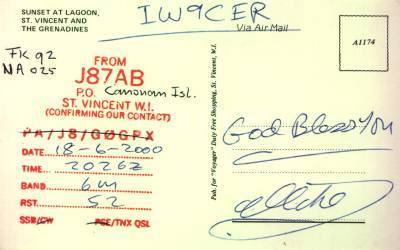 SUNSET AT LAGOON,
ST. VINCENT AND
THE GRENADINES
IW9CER
Via Air Mail
A1174
FK 92
NA 025
FROM
J87AB
P.O. Canouan Isl.
ST. VINCENT W.I.
(CONFIRMING OUR CONTACT)
PA/J8/G0GPX
DATE 18-6-2000
TIME 2026z
BAND 6m
RST 52
SSB/CW PSE/TNX QSL
Pub. for "Voyager" Duty Free Shopping, St. Vincent, W.I.
God Bless You